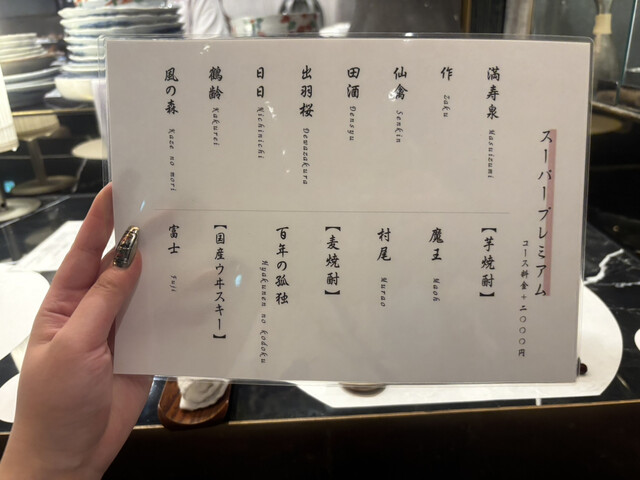 スーパープレミアム
コース料金+二〇〇〇円
満寿泉 Masuizumi
作 Zaku
仙禽 Senkin
田酒 Densyu
出羽桜 Dewazakura
日日 Nichinichi
鶴齢 Kakurei
風の森 Kaze no mori
【芋焼酎】
魔王 Maoh
村尾 Murao
【麦焼酎】
百年の孤独 Hyakunen no kodoku
【国産ウヰスキー】
富士 Fuji